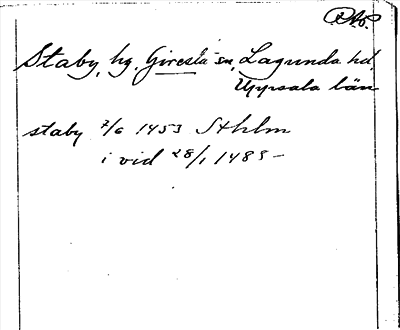 Staby, hg, Giresta sn, Lagunda hd,
Uppsala län
staby 7/6 1453 Sthlm
i vid 28/1 1485